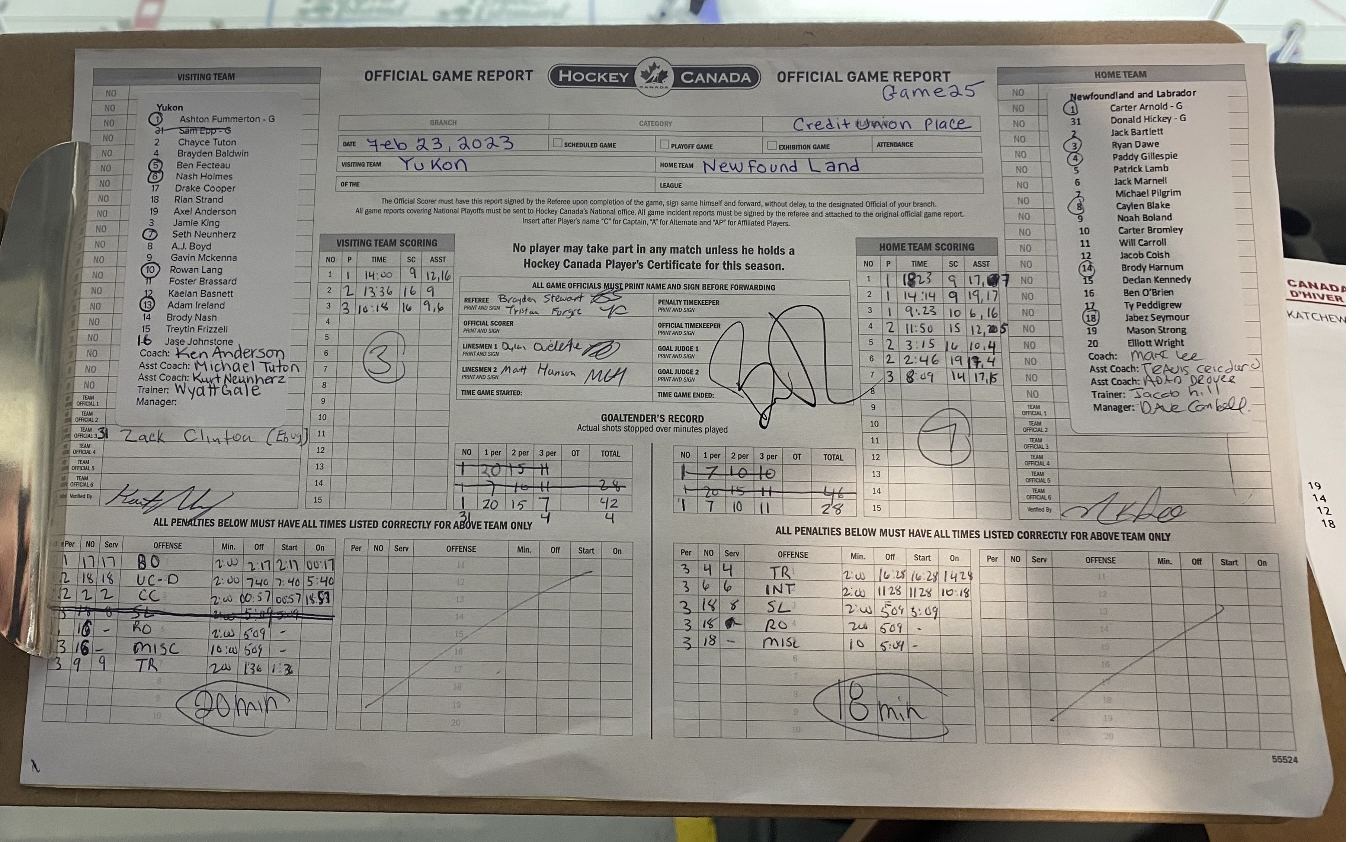 VISITING TEAM
OFFICIAL GAME REPORT
HOCKEY CANADA
OFFICIAL GAME REPORT
HOME TEAM
Game 25
Yukon
1 Ashton Fummerton - G
31 Sam Epp - G
2 Chayce Tuton
4 Brayden Baldwin
5 Ben Fecteau
6 Nash Holmes
17 Drake Cooper
18 Rian Strand
19 Axel Anderson
3 Jamie King
7 Seth Neunherz
8 A.J. Boyd
9 Gavin Mckenna
10 Rowan Lang
11 Foster Brassard
12 Kaelan Basnett
13 Adam Ireland
14 Brody Nash
15 Treytin Frizzell
16 Jase Johnstone
Coach: Ken Anderson
Asst Coach: Michael Tuton
Asst Coach: Kurt Neunherz
Trainer: Wyatt Gale
Manager:
31 Zack Clinton (Ebug)
Verified By
BRANCH
CATEGORY
Credit Union Place
DATE Feb 23, 2023
SCHEDULED GAME
PLAYOFF GAME
EXHIBITION GAME
ATTENDANCE
VISITING TEAM Yukon
HOME TEAM Newfound Land
OF THE
LEAGUE
The Official Scorer must have this report signed by the Referee upon completion of the game, sign same himself and forward, without delay, to the designated Official of your branch.
All game reports covering National Playoffs must be sent to Hockey Canada's National office. All game incident reports must be signed by the referee and attached to the original official game report.
Insert after Player's name "C" for Captain, "A" for Alternate and "AP" for Affiliated Players.
VISITING TEAM SCORING
NO P TIME SC ASST
1 1 14:00 9 12,16
2 2 13:36 16 9
3 3 10:18 16 9,6
4
5
6
7
8
9
10
11
12
13
14
15
3
No player may take part in any match unless he holds a
Hockey Canada Player's Certificate for this season.
ALL GAME OFFICIALS MUST PRINT NAME AND SIGN BEFORE FORWARDING
REFEREE Brayden Stewart
PRINT AND SIGN Tristan
PENALTY TIMEKEEPER
PRINT AND SIGN
OFFICIAL SCORER
PRINT AND SIGN
OFFICIAL TIMEKEEPER
PRINT AND SIGN
LINESMEN 1 Dylan
PRINT AND SIGN
GOAL JUDGE 1
PRINT AND SIGN
LINESMEN 2 Matt Hanson MH
PRINT AND SIGN
GOAL JUDGE 2
PRINT AND SIGN
TIME GAME STARTED:
TIME GAME ENDED:
GOALTENDER'S RECORD
Actual shots stopped over minutes played
NO 1 per 2 per 3 per OT TOTAL
1 20 15 11
1 7 10 11 28
1 20 15 7 42
31 4 4
NO 1 per 2 per 3 per OT TOTAL
1 7 10 10
1 20 15 11 46
1 7 10 11 28
HOME TEAM SCORING
NO P TIME SC ASST
1 1 1823 9 17,7
2 1 14:14 9 19,17
3 1 9:23 10 6,16
4 2 11:50 15 12,5
5 2 3:15 16 10,4
6 2 2:46 19 17,4
7 3 8:09 14 17,15
8
9
10
11
12
13
14
15
7
Newfoundland and Labrador
1 Carter Arnold - G
31 Donald Hickey - G
2 Jack Bartlett
3 Ryan Dawe
4 Paddy Gillespie
5 Patrick Lamb
6 Jack Marnell
7 Michael Pilgrim
8 Caylen Blake
9 Noah Boland
10 Carter Bromley
11 Will Carroll
12 Jacob Coish
14 Brody Harnum
15 Declan Kennedy
16 Ben O'Brien
17 Ty Peddigrew
18 Jabez Seymour
19 Mason Strong
20 Elliott Wright
Coach: Marc Lee
Asst Coach: Travis
Asst Coach: Adad
Trainer: Jacob Hill
Manager: Dave
Verified By
CANADA
D'HIVER
19
14
12
18
ALL PENALTIES BELOW MUST HAVE ALL TIMES LISTED CORRECTLY FOR ABOVE TEAM ONLY
Per NO Serv OFFENSE Min. Off Start On
1 17 17 BO 2:00 2:17 2:17 00:17
2 18 18 UC-D 2:00 7:40 7:40 5:40
2 2 2 CC 2:00 00:57 00:57 18:57
16 - RO 2:00 509 -
3 16 - MISC 10:00 509 -
3 9 9 TR 200 136 1:36
20 min
Per NO Serv OFFENSE Min. Off Start On
ALL PENALTIES BELOW MUST HAVE ALL TIMES LISTED CORRECTLY FOR ABOVE TEAM ONLY
Per NO Serv OFFENSE Min. Off Start On
3 4 4 TR 2:00 16:28 16:28 1428
3 6 6 INT 2:00 1128 1128 10:18
3 18 8 SL 2:00 509 5:09
3 18 RO 200 509 -
3 18 - MISC 10 5:09 -
18 min
Per NO Serv OFFENSE Min. Off Start On
55524